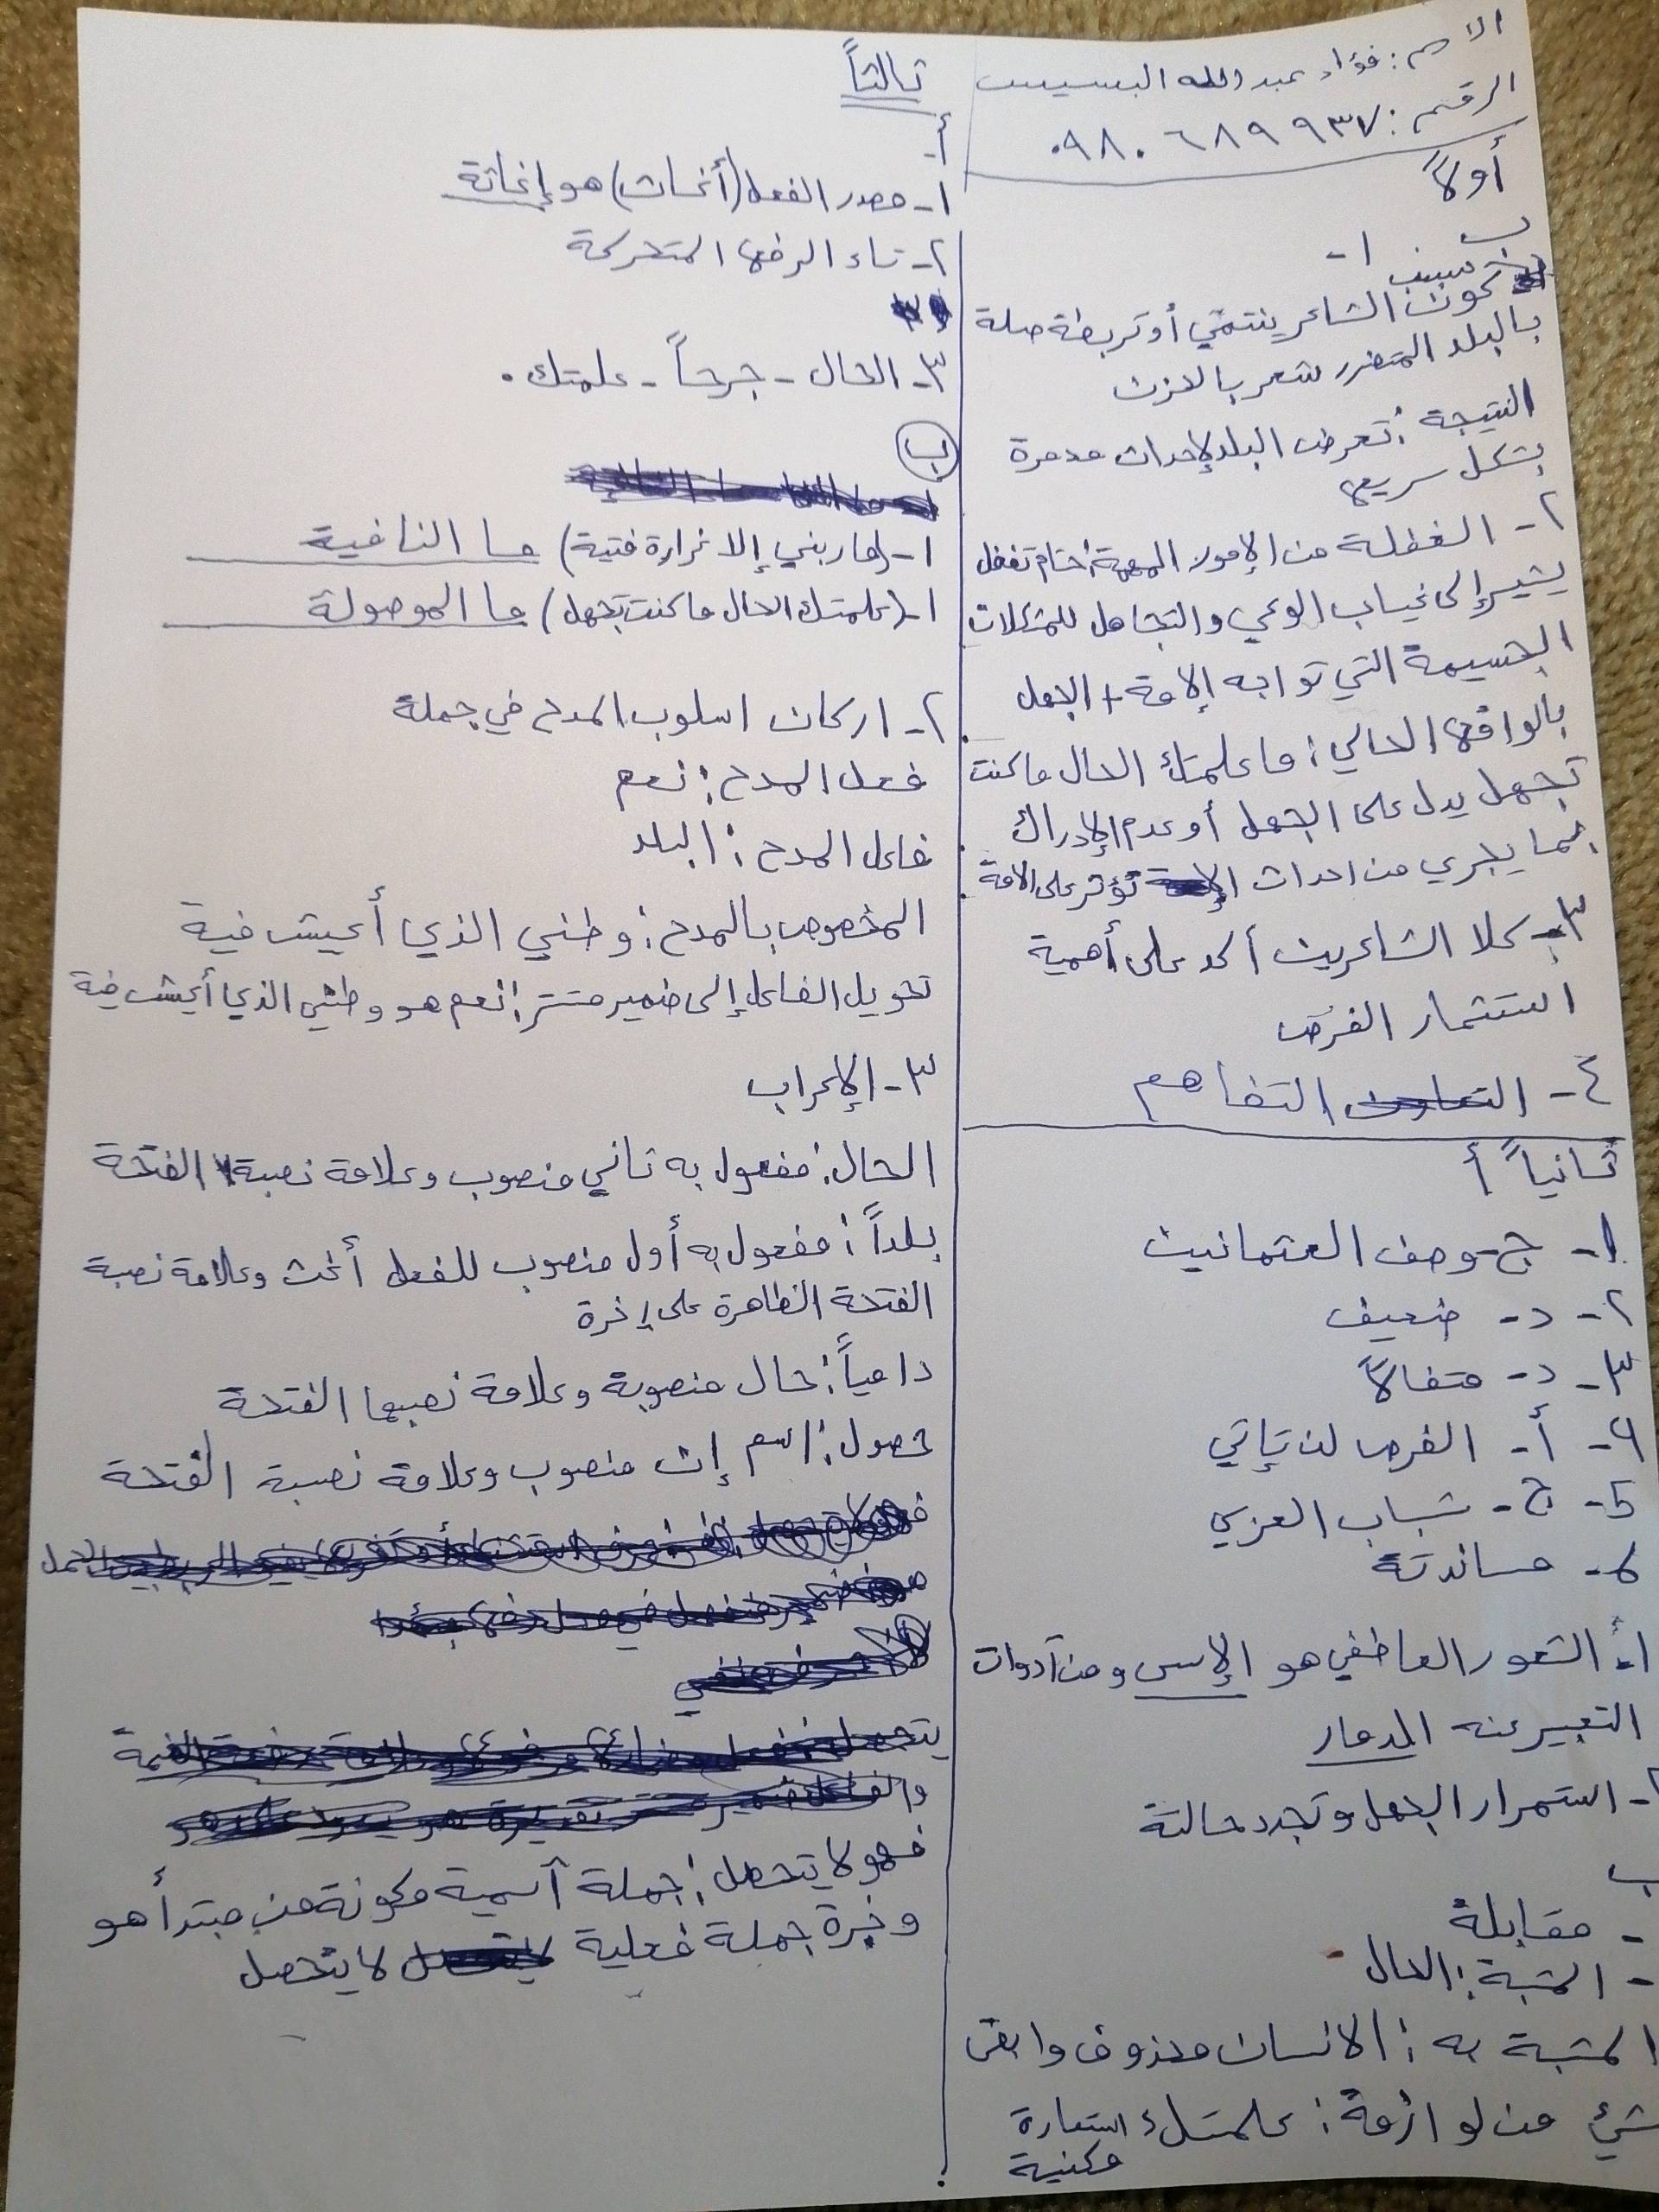 الاسم: فؤاد عبدالله البسيس
الرقم: ٠٩٨٠٦٨٩٩٣٧
أولاً
ب
١- سبب
كون الشاعر ينتمي أو تربطة صلة
بالبلد المتضرر شعر بالحزن
النتيجة: تعرض البلد لإحداث مدمرة
بشكل سريع
٢- الغفلة من الإمور المهمة: ختام تغفل
يشير إلى غياب الوعي والتجاهل للمشكلات
الجسيمة التي تواجه الإمة + الجهل
بالواقع الحالي: ما علمتك الحال ما كنت
تجهل يدل على الجهل أو عدم الإدراك
بما يجري من احداث تؤثر على الامة
٣- كلا الشاعرين أكد على أهمية
استثمار الفرص
٤- التفاهم
ثانياً أ
١- ج- وصف العثمانين
٢- د- ضعيف
٣- د- متفالاً
٤- أ- الفرص لن تإتي
5- ج- شباب العزي
٦- مساندتة
أ. ١- الشعور العاطفي هو الإسى ومن آدوات
التعبير عنه الدمار
٢- استمرار الجهل وتجدد حالتة
ب
- مقابلة
- المشبة: الحال
المشبة به: الانسان محذوف وابقى
شيئ من لوازمة: علمتك استعارة
مكنية
ثالثاً
أ-
١- مصدر الفعل (أغاث) هو إغاثة
٢- تاء الرفع المتحركة
٣- الحال - جرحاً - علمتك.
ب
١- (ما ربني إلا غرارة فتية) ما النافية
١- (علمتك الحال ما كنت تجهل) ما الموصولة
٢- اركان اسلوب المدح في جملة
فعل المدح: نعم
فاعل المدح: البلد
المخصوص بالمدح: وطني الذي أعيش فية
تحويل الفاعل إلى ضمير مستتر: نعم هو وطني الذي أعيش فية
٣- الإعراب
الحال: مفعول به ثاني منصوب وعلامة نصبة الفتحة
بلداً: مفعول به أول منصوب للفعل أغث وعلامة نصبة
الفتحة الظاهرة على إخرة
دامياً: حال منصوبة وعلامة نصبها الفتحة
حصول: اسم إن منصوب وعلامة نصبة الفتحة
فهو لا يتحصل: جملة آسمية مكونة من مبتدأ هو
وخبرة جملة فعلية لا يتحصل